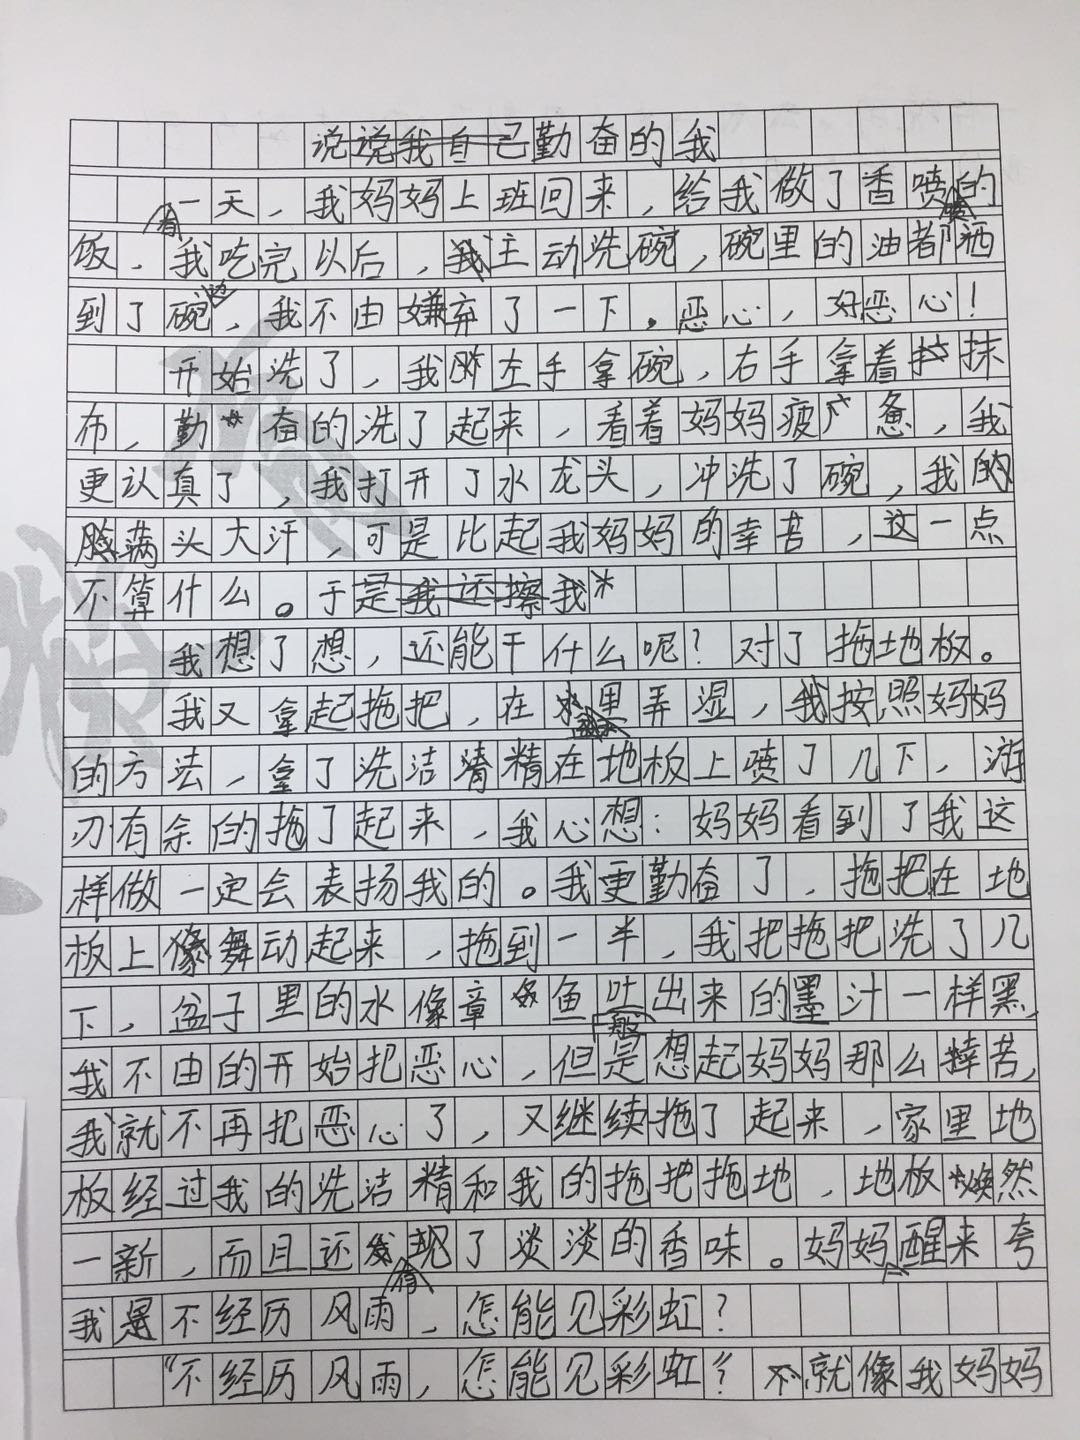 说说我自己勤奋的我
一天，我妈妈上班回来，给我做了香喷的
饭，我吃完以后，我主动洗碗，碗里的油都洒
到了碗边，我不由嫌弃了一下。恶心，好恶心！
开始洗了，我左手拿碗，右手拿着抹
布，勤奋的洗了起来，看着妈妈疲惫，我
更认真了，我打开了水龙头，冲洗了碗，我的
脸满头大汗，可是比起我妈妈的幸苦，这一点
不算什么。于是我还擦我
我想了想，还能干什么呢？对了拖地板。
我又拿起拖把，在水里弄湿，我按照妈妈
的方法，拿了洗洁精在地板上喷了几下，游
刃有余的拖了起来，我心想：妈妈看到了我这
样做一定会表扬我的。我更勤奋了，拖把在地
板上像舞动起来，拖到一半，我把拖把洗了几
下，盆子里的水像章鱼吐出来的墨汁一样黑，
我不由的开始把恶心，但是想起妈妈那么辛苦，
我就不再把恶心了，又继续拖了起来，家里地
板经过我的洗洁精和我的拖把拖地，地板焕然
一新，而且还有了淡淡的香味。妈妈醒来夸
我是不经历风雨，怎能见彩虹？
“不经历风雨，怎能见彩虹？就像我妈妈